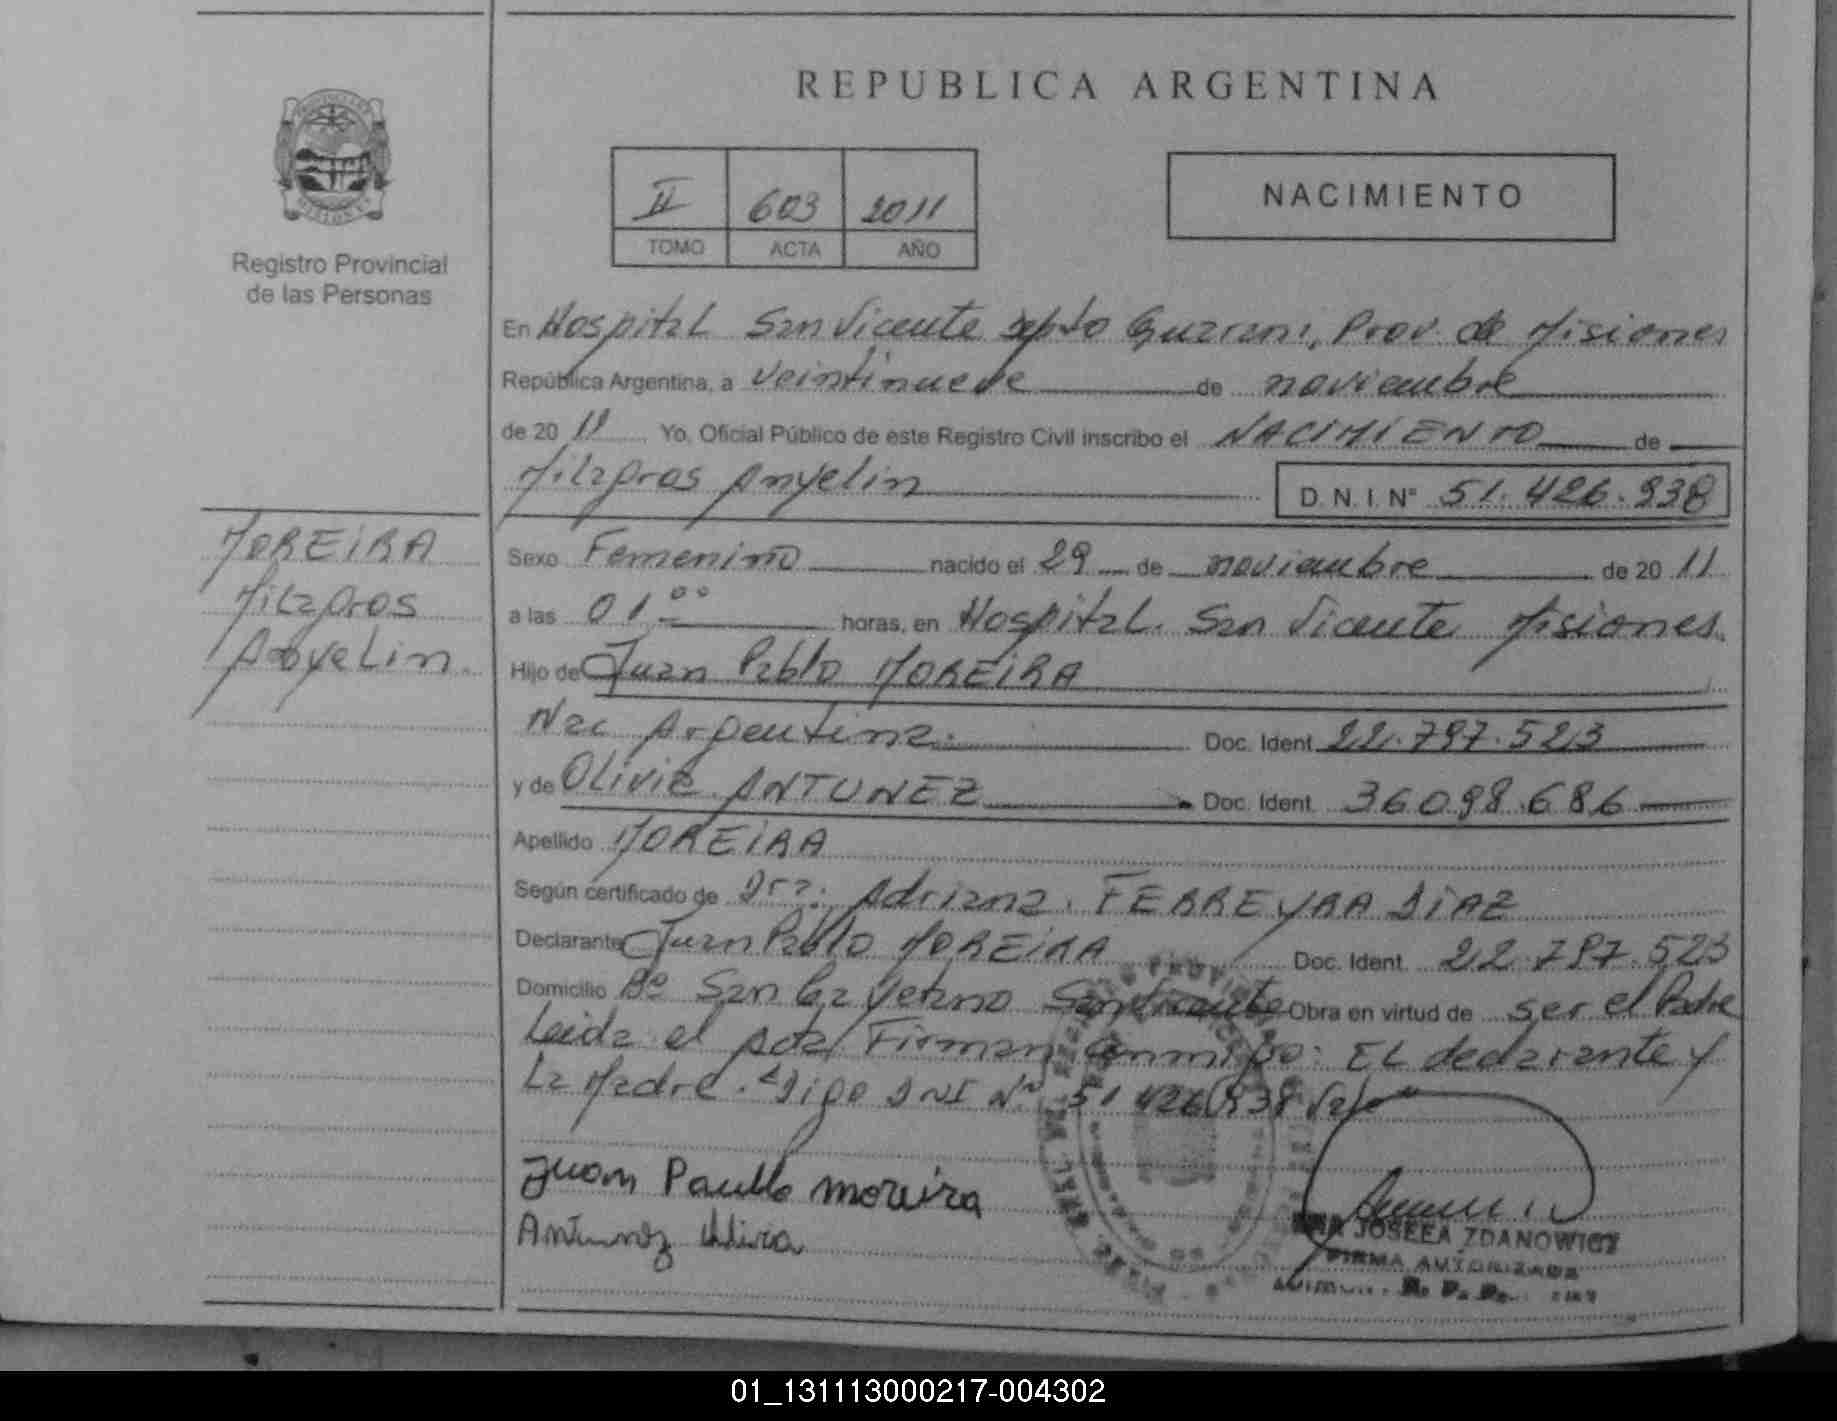 REPUBLICA ARGENTINA
II 603 2011
TOMO ACTA AÑO
NACIMIENTO
Registro Provincial
de las Personas
En Hospital San Vicente Dpto Guarani, Prov. de Misiones
República Argentina, a veintinueve de noviembre
de 20 11 Yo, Oficial Público de este Registro Civil inscribo el NACIMIENTO de
Milagros Anyelin D. N. I. N° 51.426.938
MOREIRA
Milagros
Anyelin
Sexo Femenino nacido el 29 de noviembre de 20 11
a las 01 00 horas, en Hospital San Vicente Misiones
Hijo de Juan Pablo MOREIRA
Nac Argentina. Doc. Ident 22.797.523
y de Olivia ANTUNEZ Doc. Ident. 36098.686
Apellido MOREIRA
Según certificado de Dra. Adriana FERREYRA DIAZ
Declarante Juan Pablo MOREIRA Doc. Ident. 22.797.523
Domicilio Bº San Cayetano San Vicente Obra en virtud de ser el Padre
Leida el Acta Firman conmigo: EL declarante y
La Madre. "Digo DNI Nº 51 426 938 Vale"
Juan Paullo moreira
Antunez Olivia
JOSEFA ZDANOWICZ
FIRMA AUTORIZADA
01_131113000217-004302